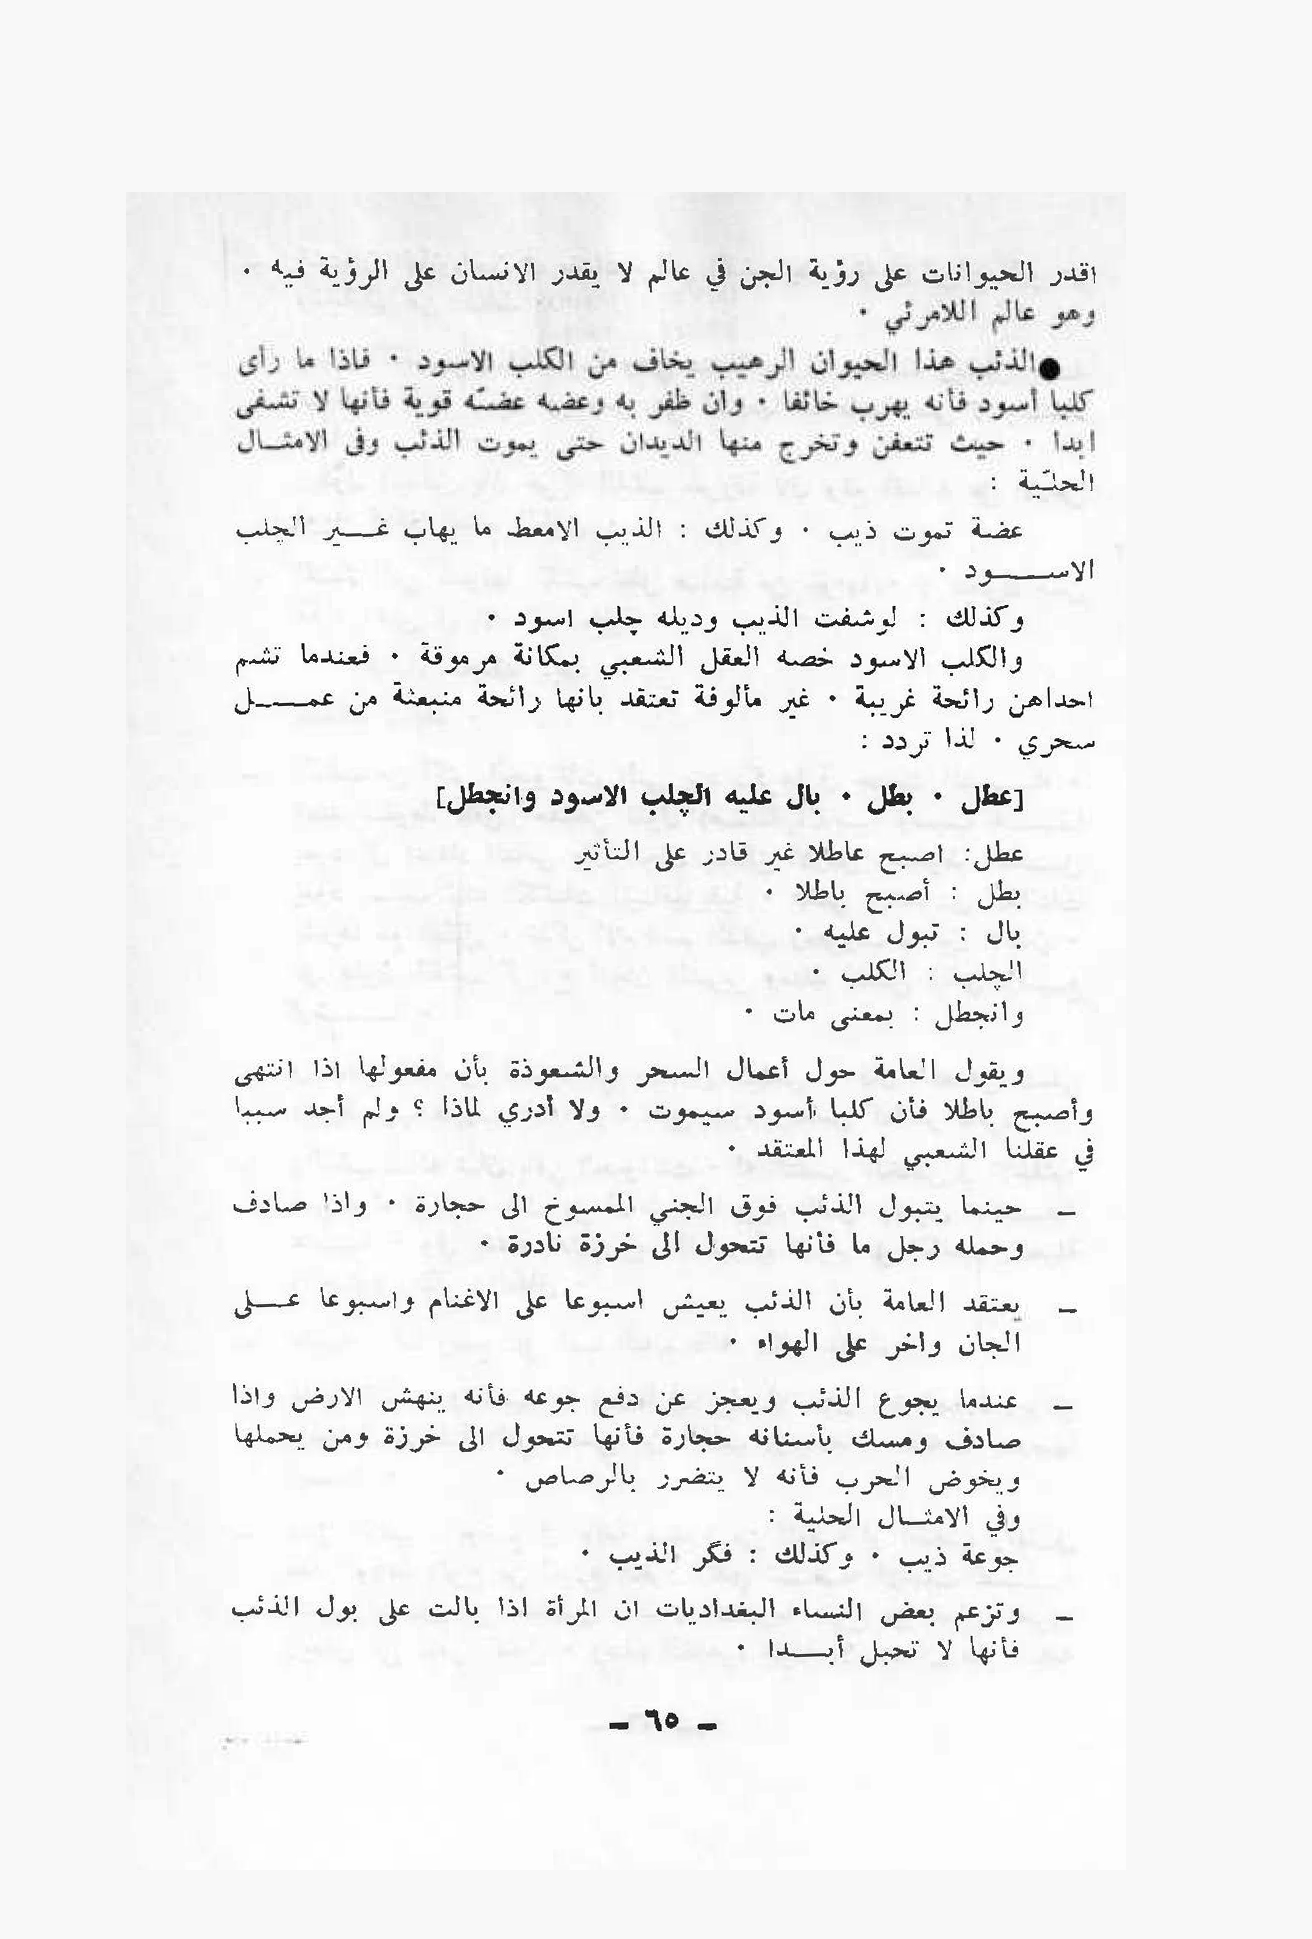 اقدر الحيوانات على رؤية الجن في عالم لا يقدر الانسان على الرؤية فيه ٠
وهو عالم اللامرئي ٠
● الذئب هذا الحيوان الرهيب يخاف من الكلب الاسود ٠ فاذا ما رأى
كلبا أسود فأنه يهرب خائفا ٠ وان ظفر به وعضه عضّه قوية فأنها لا تشفى
ابدا ٠ حيث تتعفن وتخرج منها الديدان حتى يموت الذئب وفى الامثـــال
الحلـّية :
عضة تموت ذيب ٠ وكذلك : الذيب الامعط ما يهاب غـــير الچلب
الاســـــود ٠
وكذلك : لوشفت الذيب وديله چلب اسود ٠
والكلب الاسود خصه العقل الشعبي بمكانة مرموقة ٠ فعندما تشم
احداهن رائحة غريبة ٠ غير مألوفة تعتقد بانها رائحة منبعثة من عمـــــل
سحري ٠ لذا تردد :
[عطل ٠ بطل ٠ بال عليه الچلب الاسود وانجطل]
عطل: اصبح عاطلا غير قادر على التأثير
بطل : أصبح باطلا ٠
بال : تبول عليه ٠
الچلب : الكلب ٠
وانجطل : بمعنى مات ٠
ويقول العامة حول أعمال السحر والشعوذة بأن مفعولها اذا انتهى
وأصبح باطلا فأن كلبا أسود سيموت ٠ ولا أدري لماذا ؟ ولم أجد سببا
في عقلنا الشعبي لهذا المعتقد ٠
– حينما يتبول الذئب فوق الجني الممسوخ الى حجارة ٠ واذا صادف
وحمله رجل ما فأنها تتحول الى خرزة نادرة ٠
– يعتقد العامة بأن الذئب يعيش اسبوعا على الاغنام واسبوعا عــــلى
الجان واخر على الهواء ٠
– عندما يجوع الذئب ويعجز عن دفع جوعه فأنه ينهش الارض واذا
صادف ومسك بأسنانه حجارة فأنها تتحول الى خرزة ومن يحملها
ويخوض الحرب فأنه لا يتضرر بالرصاص ٠
وفي الامثـــال الحلية :
جوعة ذيب ٠ وكذلك : فگر الذيب ٠
– وتزعم بعض النساء البغداديات ان المرأة اذا بالت على بول الذئب
فأنها لا تحبل أبـــــدا ٠
– ٦٥ –